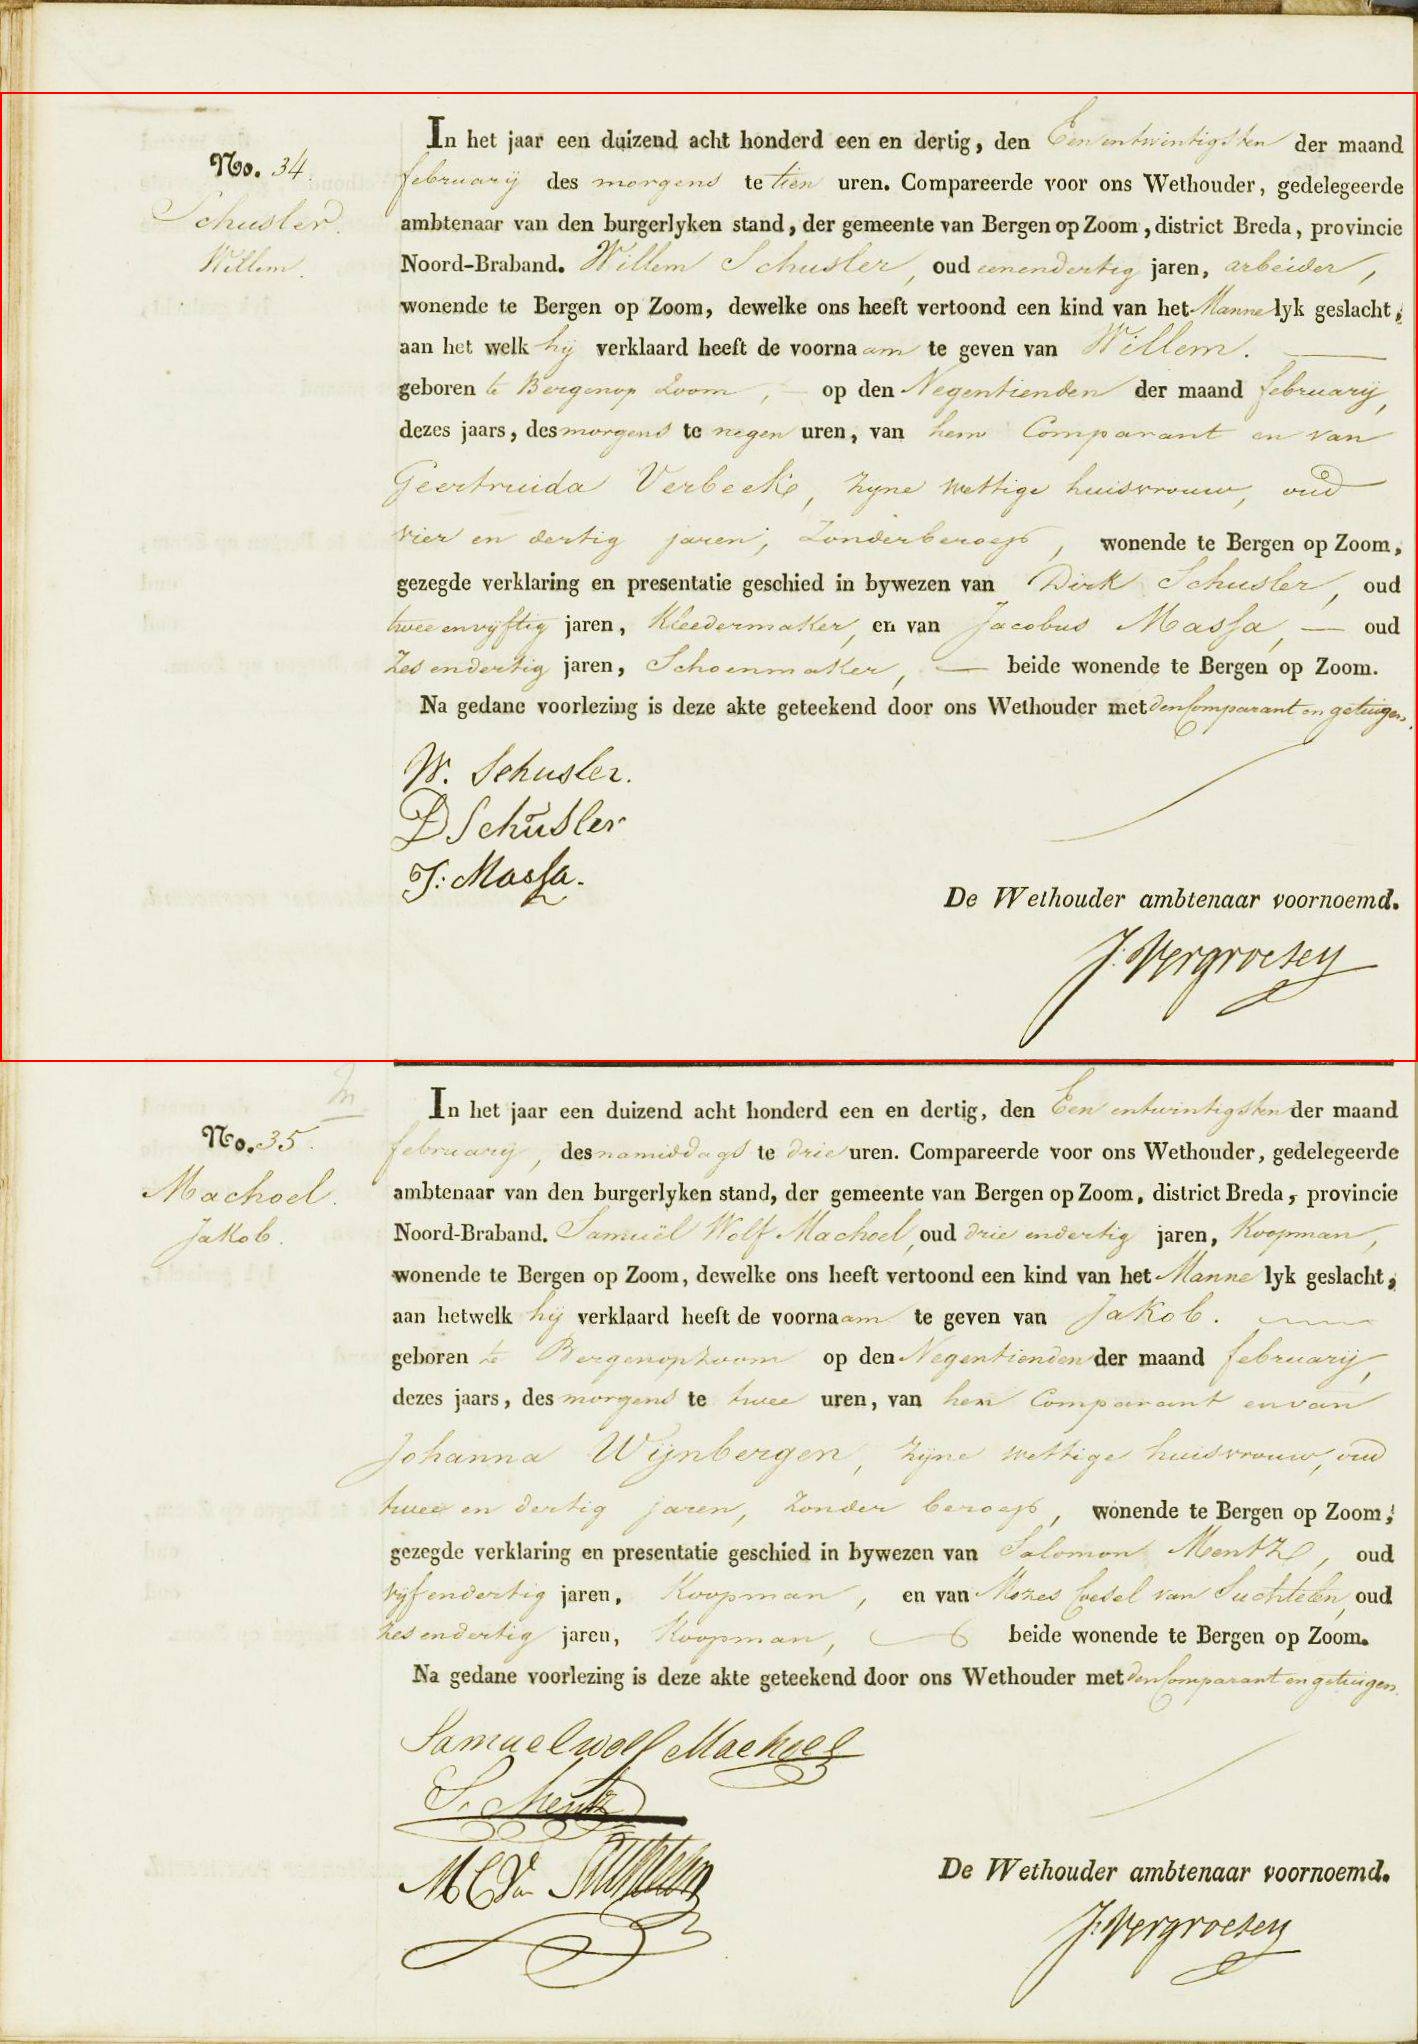 No. 34.
Schusler.
Willem.
In het jaar een duizend acht honderd een en dertig, den Eenentwintigsten der maand
february des morgens te tien uren. Compareerde voor ons Wethouder, gedelegeerde
ambtenaar van den burgerlyken stand, der gemeente van Bergen op Zoom, district Breda, provincie
Noord-Braband. Willem Schusler, oud eenendertig jaren, arbeider,
wonende te Bergen op Zoom, dewelke ons heeft vertoond een kind van het Mannelyk geslacht,
aan het welk hij verklaard heeft de voornaam te geven van Willem.
geboren te Bergenop Zoom, op den Negentienden der maand february,
dezes jaars, des morgens te negen uren, van hem Comparant en van
Geertruida Verbeek, zyne wettige huisvrouw, oud
vier en dertig jaren, Zonder beroep, wonende te Bergen op Zoom,
gezegde verklaring en presentatie geschied in bywezen van Dirk Schusler, oud
twee envyftig jaren, Kleedermaker, en van Jacobus Massa, — oud
Zes endertig jaren, Schoenmaker, — beide wonende te Bergen op Zoom.
Na gedane voorlezing is deze akte geteekend door ons Wethouder met den Comparant en getuigen.
W. Schusler.
D Schusler
J: Massa.
De Wethouder ambtenaar voornoemd.
J. Vergroesen
No. 35.
Machoel.
Jakob.
In het jaar een duizend acht honderd een en dertig, den Een entwintigsten der maand
february, des namiddags te drie uren. Compareerde voor ons Wethouder, gedelegeerde
ambtenaar van den burgerlyken stand, der gemeente van Bergen op Zoom, district Breda, provincie
Noord-Braband. Samuël Wolf Machoel, oud drie endertig jaren, Koopman,
wonende te Bergen op Zoom, dewelke ons heeft vertoond een kind van het Mannelyk geslacht,
aan hetwelk hij verklaard heeft de voornaam te geven van Jakob.
geboren te Bergenopzoom op den Negentienden der maand february,
dezes jaars, des morgens te twee uren, van hem Comparant en van
Johanna Wijnbergen, zyne wettige huisvrouw, oud
twee en dertig jaren, Zonder beroep, wonende te Bergen op Zoom,
gezegde verklaring en presentatie geschied in bywezen van Salomon Mentz, oud
vyf endertig jaren, Koopman, en van Mozes Coesel van Suchtelen, oud
zes endertig jaren, Koopman, beide wonende te Bergen op Zoom.
Na gedane voorlezing is deze akte geteekend door ons Wethouder met den Comparant en getuigen.
Samuel wolf Machoel
S. Mentz
M C Van Suchtelen
De Wethouder ambtenaar voornoemd.
J. Vergroesen